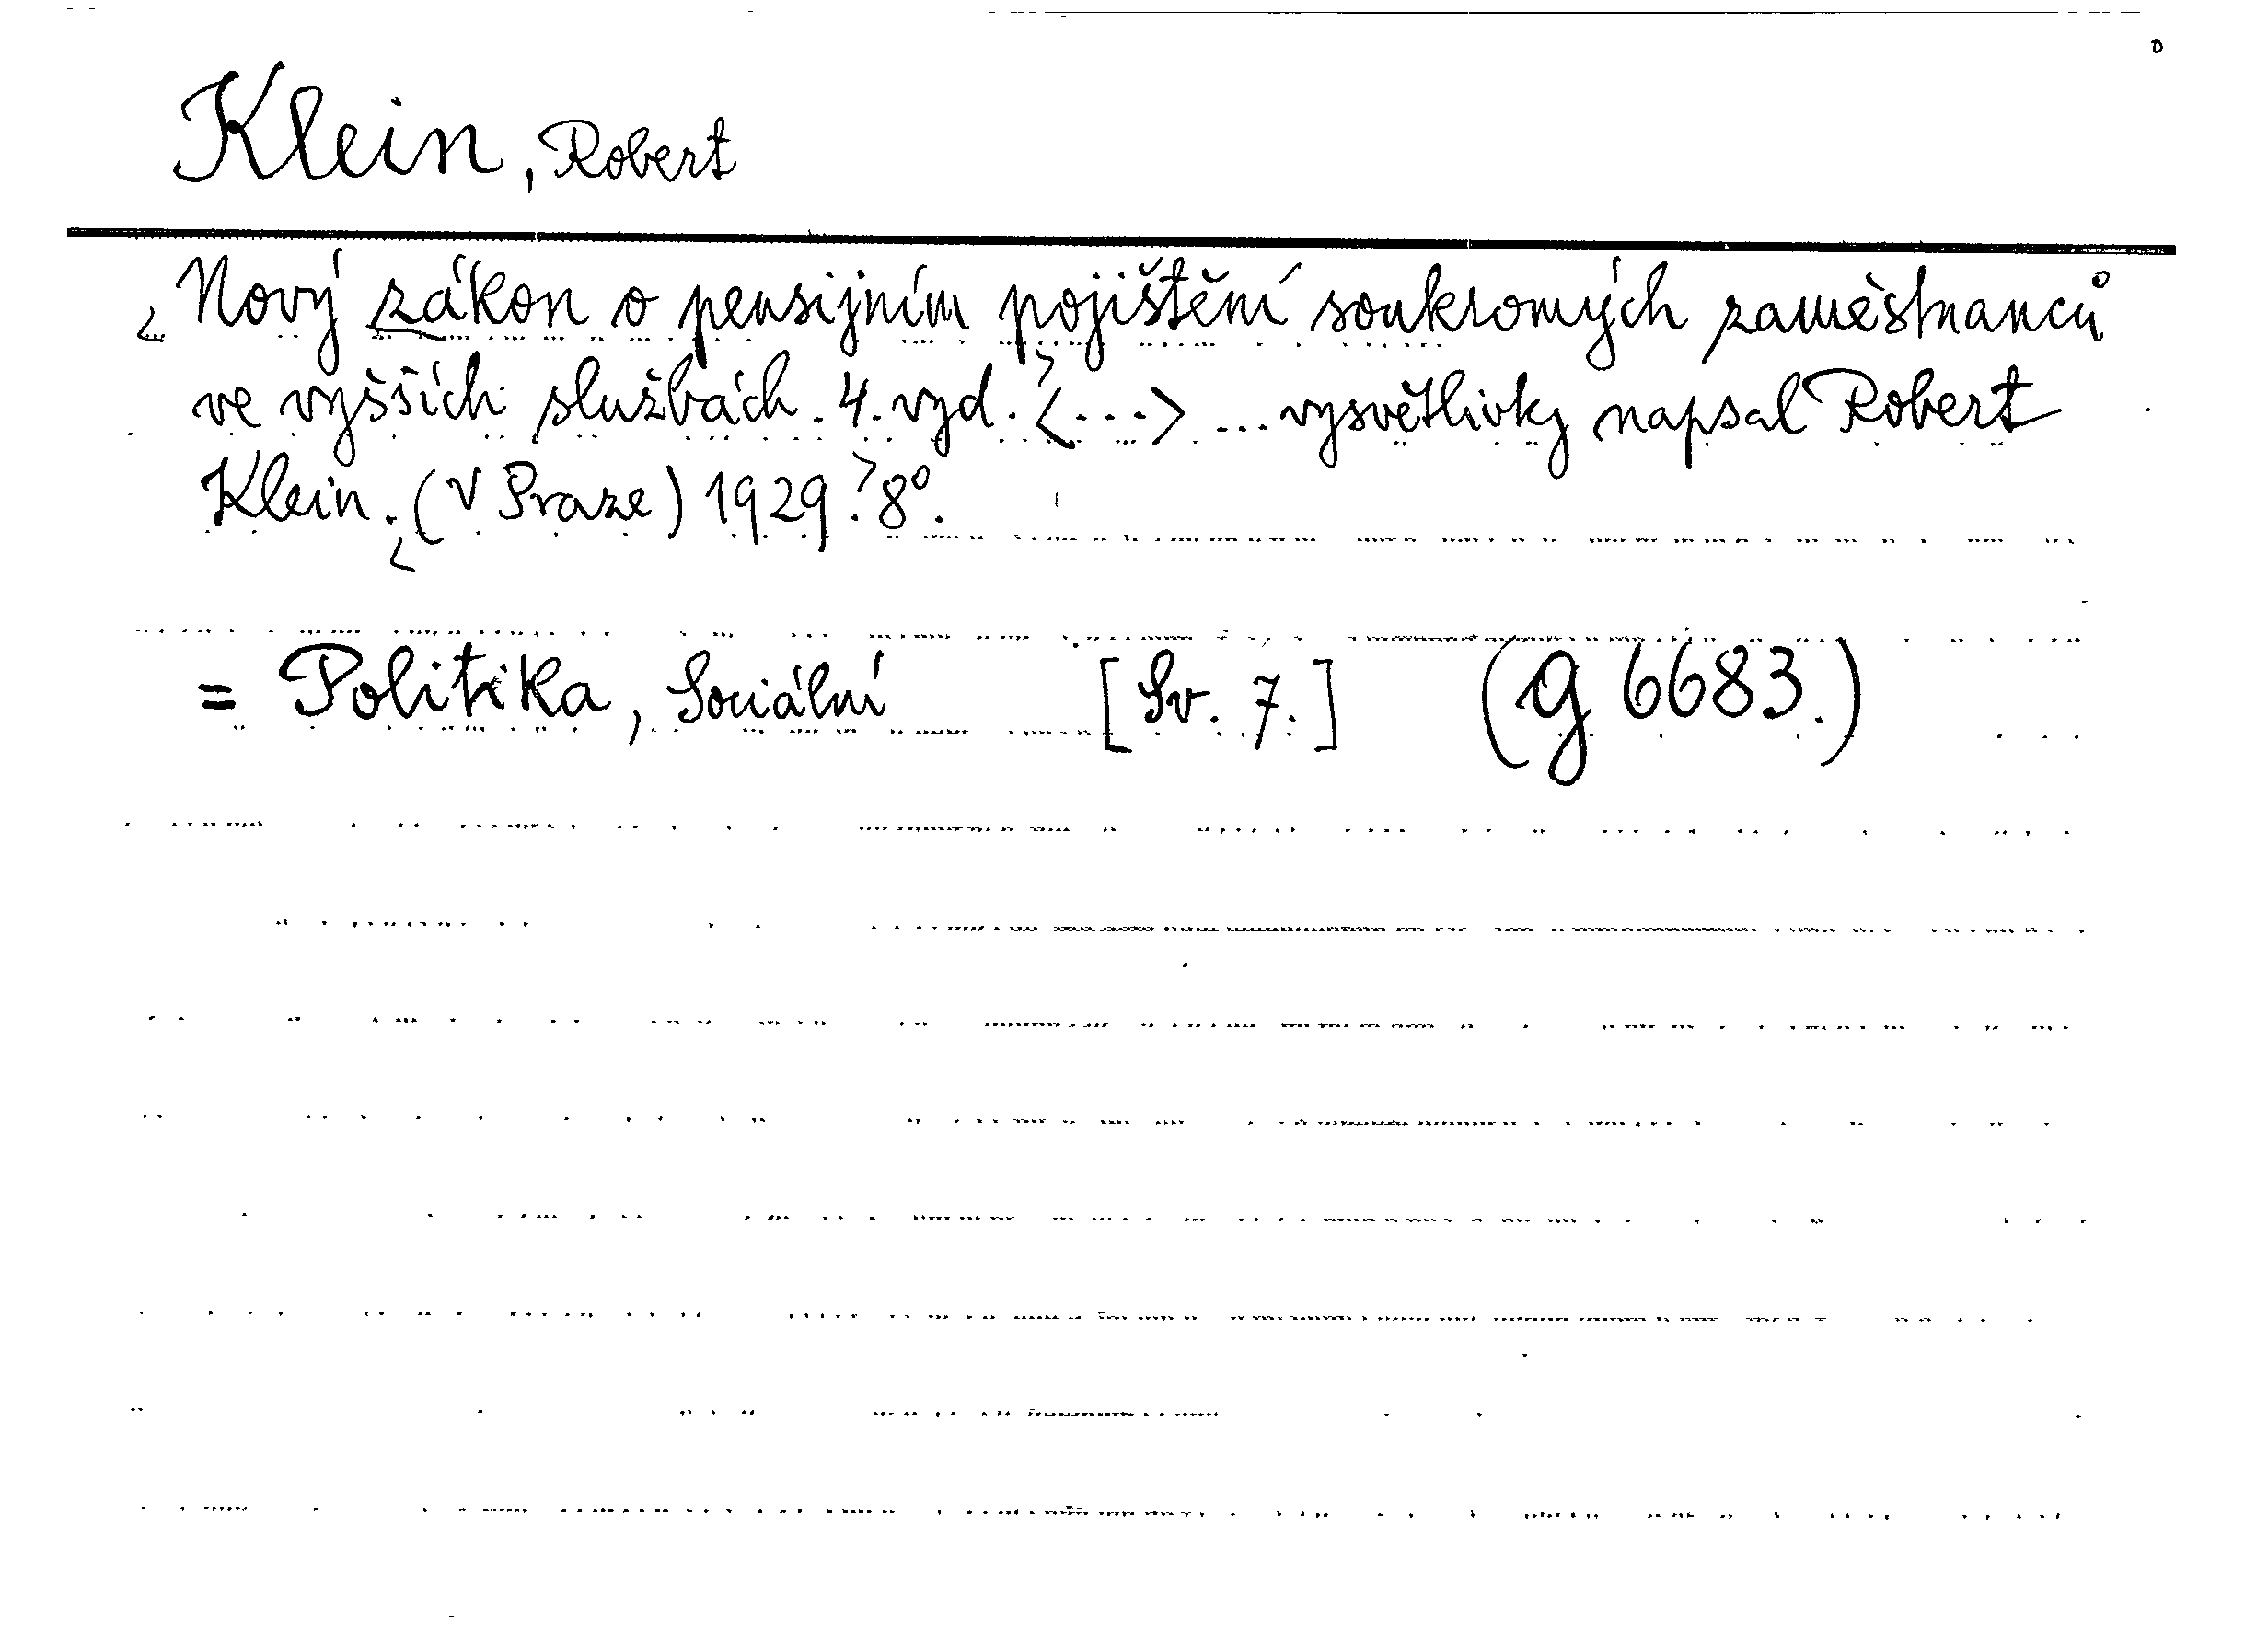 Klein, Robert
Nový zákon o pensijním pojištění soukromých zaměstnanců
ve vyšších službách. 4. vyd. <...> ... vysvětlivky napsal Robert
Klein. (V Praze) 1929. 8°.
= Politika, Sociální [Sv. 7.] (g 6683.)